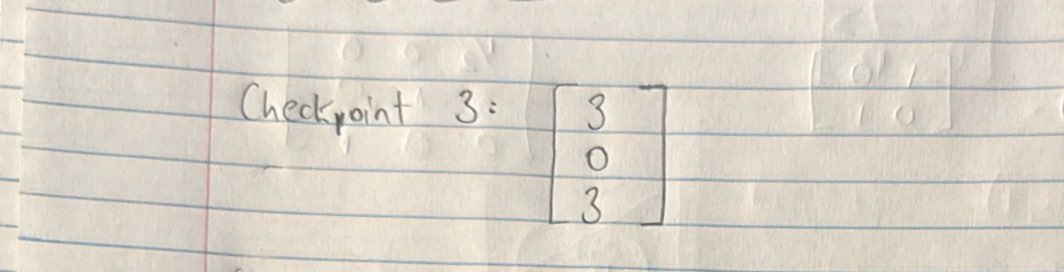 Checkpoint 3: [3
0
3]